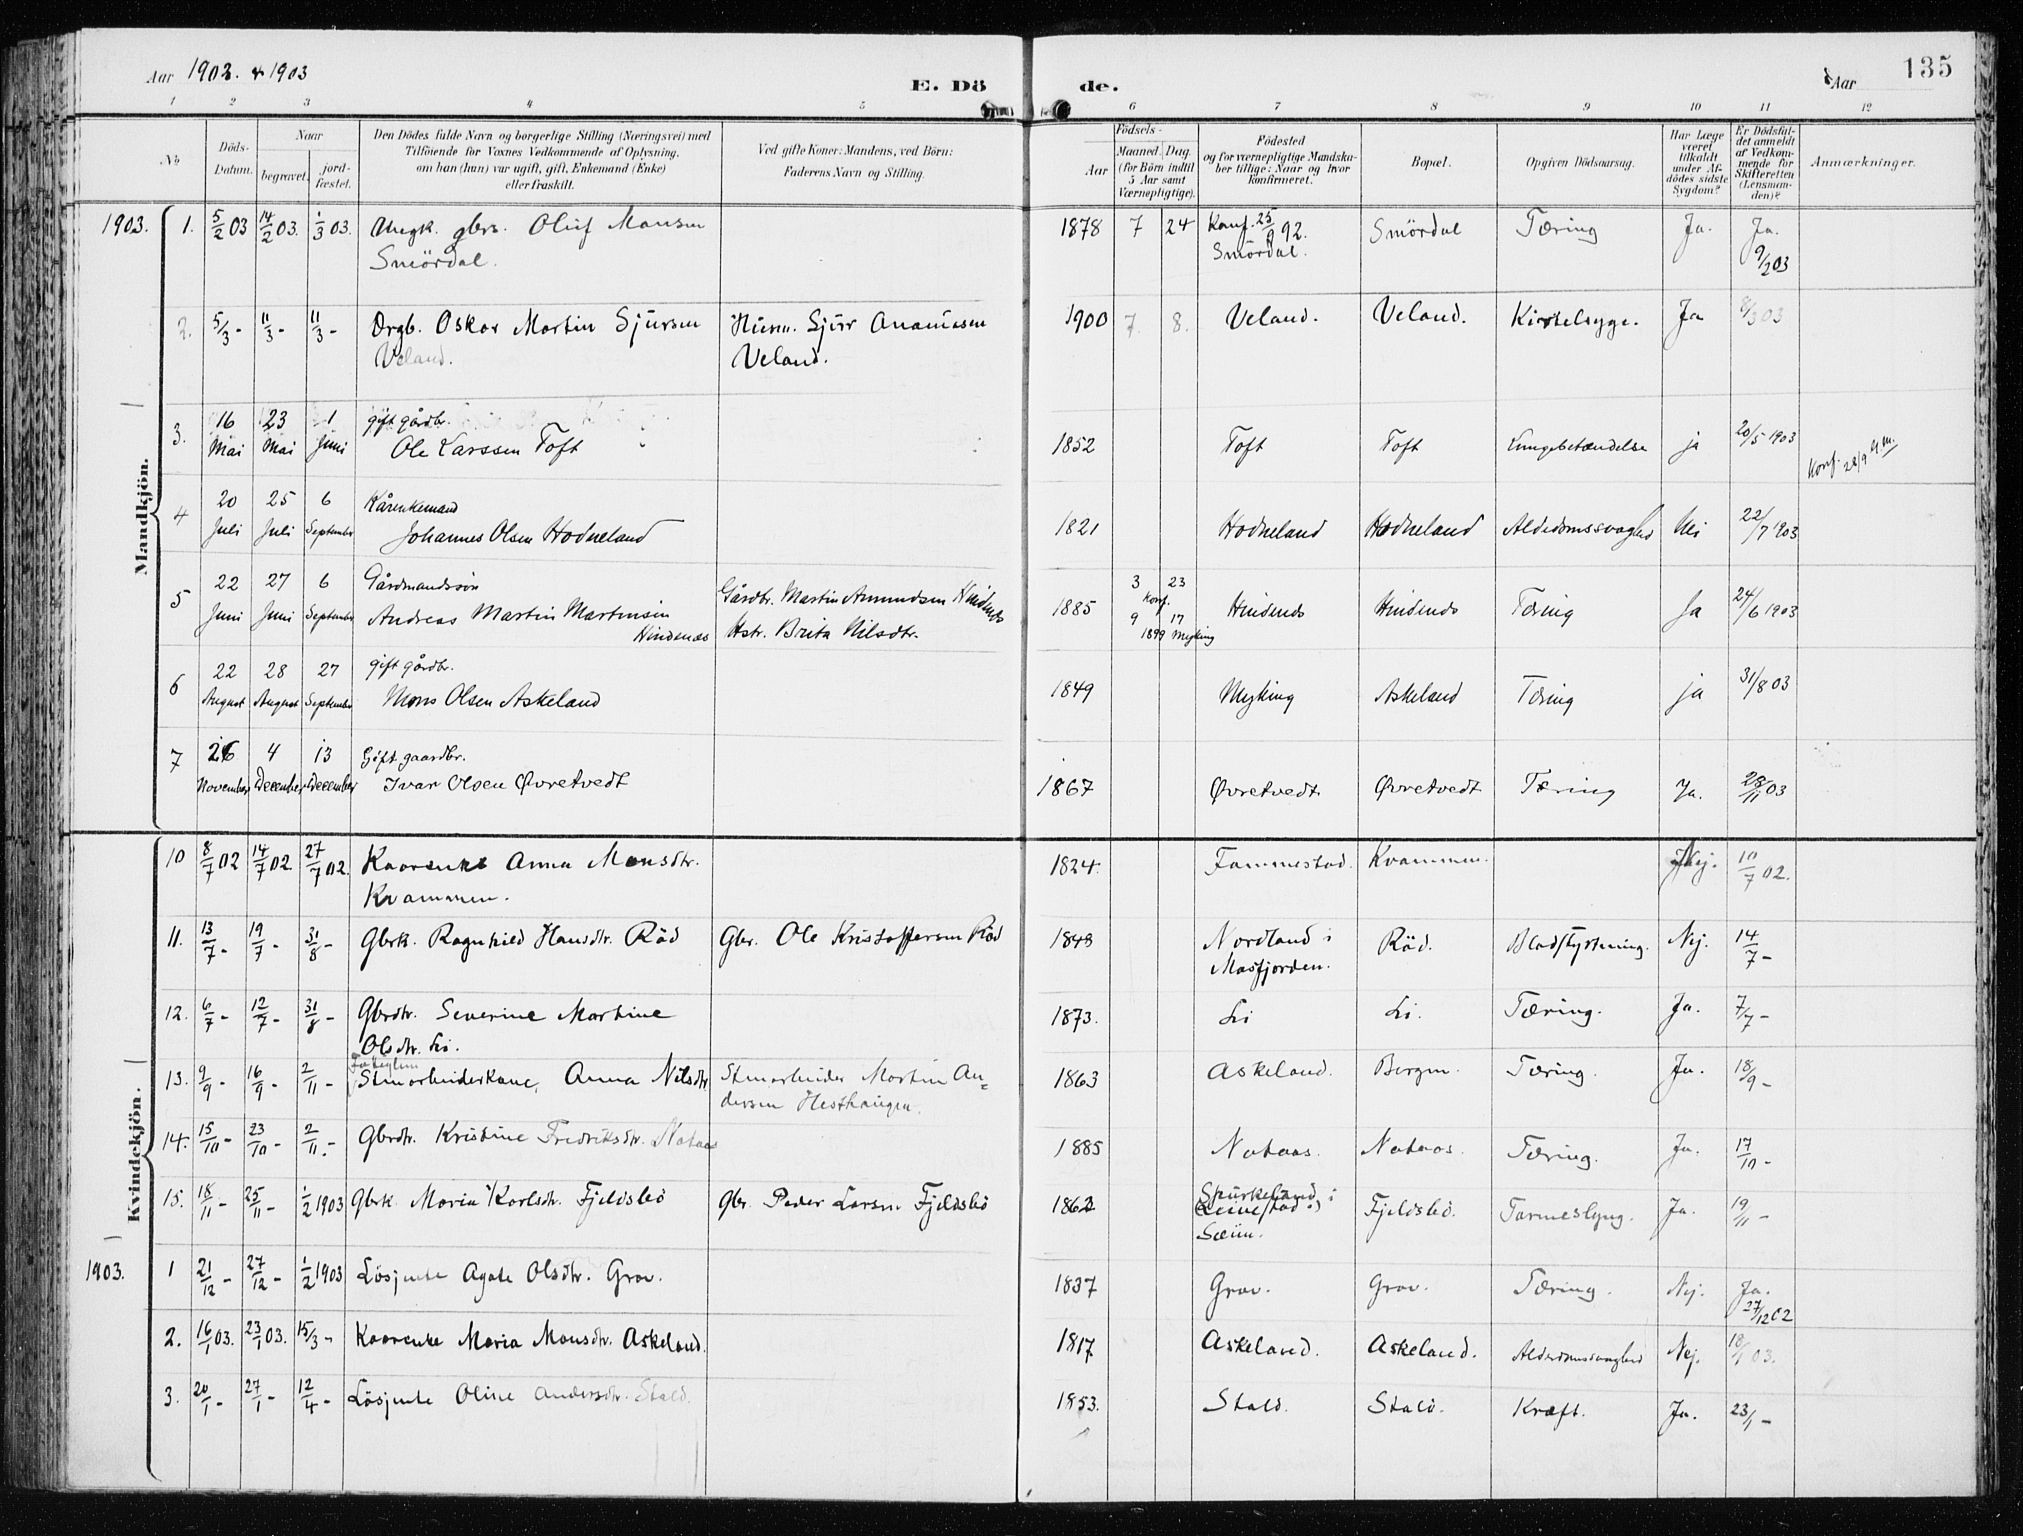 Aar 1902. & 1903
E. Dö de.
Aar
135
1 2 3 4 5 6 7 8 9 10 11 12
No
Döds-Datum.
Naar
begravet.
jord-fæstet.
Den Dödes fulde Navn og borgerlige Stilling (Næringsvei) med
Tilföiende for Voxnes Vedkommende af Oplysning,
om han (hun) var ugift, gift, Enkemand (Enke)
eller fraskilt.
Ved gifte Koner: Mandens, ved Börn:
Faderens Navn og Stilling.
Födsels-
Aar
Maaned. Dag.
(for Börn indtil
5 Aar samt
Værnepligtige).
Födested
og for værnepligtige Mandska-
ber tillige: Naar og hvor
konfirmeret.
Bopæl.
Opgiven Dödsaarsag.
Har Læge
været
tilkaldt
under Af-
dödes sidste
Sygdom?
Er Dödsfal-
det anmeldt
af Vedkom-
mende for
Skifteretten
(Lensman-
den)?
Anmærkninger.
Mandkjön.
1903. 1. 5/2 03 14/2 03. 1/3 03. Ungk. gbr. Oluf Monsen 1878 7 24 Konf. 25/9 92. Smördal Tæring Ja. Ja.
Smördal. Smördal. 9/2 03
2. 5/3 - 11/3 - 11/3 - Oskar Martin Sjursen Husm. Sjur 1900 7. 8. Veland. Veland. Kirtelsyge. Ja 8/3 03
Veland. Veland.
3. 16 23 1 gift gårdbr.
Mai Mai Juni Ole Larssen Toft 1852 Toft Toft Lungebetændelse ja 20/5 1903 Konf. 28/9
4 20 25 6 Kårenkemand
Juli Juli September Johannes Olsen Hodneland 1821 Hodneland Hodneland Alderdomssvaghed Nei 22/7 1903
5 22 27 6 Gårdmandssön Gårdbr. Martin Amundsen Hindenes 3 23
Juni Juni September Andreas Martin Martinsen 1885 Konf. Hindenes Hindenes Tæring Ja 24/6 1903
Hindenæs Hstr. Brita Nilsdtr. 9 17
1899 Myking
6 22 28 27 gift gårdbr.
August August September Mons Olsen Askeland 1849 Myking Askeland Tæring ja 31/8 03
7 26 4 13 Gift gaardbr.
November December December Ivar Olsen Øvretvedt 1867 Øvretvedt Øvretvedt Tæring Ja. 28/11 03
Kvindekjön.
10 8/7 02 14/7 02 27/7 02. Kaarenke Anna Monsdtr. 1824. Fammestad. Kvammen. Nej. 10/7 02.
Kvammen.
11. 13/7 - 19/7 - 31/8 - Gbrk. Ragnhild Hansdtr. Röd Gbr. Ole Kristoffersen Röd 1848 Nordland i Röd. Blodstyrtning. Nej. 14/7 -
Masfjorden.
12. 6/7 - 12/7 - 31/8 - Gbrdtr. Severine Martine 1873. Li Li. Tæring. Ja. 7/7 -
Olsdtr. Li.
13. 9/9 - 16/9 - 2/11 - Stenarbeiderkone, Anna Nilsdtr Stenarbeider Martin An= 1863 Askeland. Bergen. Tæring. Ja. 18/9 -
dersen Hesthaugen.
14. 15/10 - 23/10 - 2/11. - Gbrdtr. Kristine Fredriksdtr. Nataas 1885 Nataas. Nataas. Tæring. Ja. 17/10 -
15. 18/11 - 25/11 - 1/2 1903 Gbrk. Maria Karlsdtr. Fjeldsbö Gbr. Peder Larsen Fjeldsbö 1862 Spurkeland i Fjeldsbö. Tarmeslyng. Ja. 19/11 -
Sæim.
1903. 1 21/12 - 27/12 - 1/2 1903 Lösjente Agate Olsdtr. Grov. 1837 Grov. Grov. Tæring. Nej. Ja.
27/12 02
2. 16/1 03. 23/1 03. 15/3 - Kaarenke Maria Monsdtr. Askeland. 1817. Askeland. Askeland. Alderdomssvaghed Nej. 18/1 03.
3. 20/1 - 27/1 - 12/4 - Lösjente Oline Andersdtr. Stald. 1853. Stald. Stald. Kræft. Ja. 23/1 -